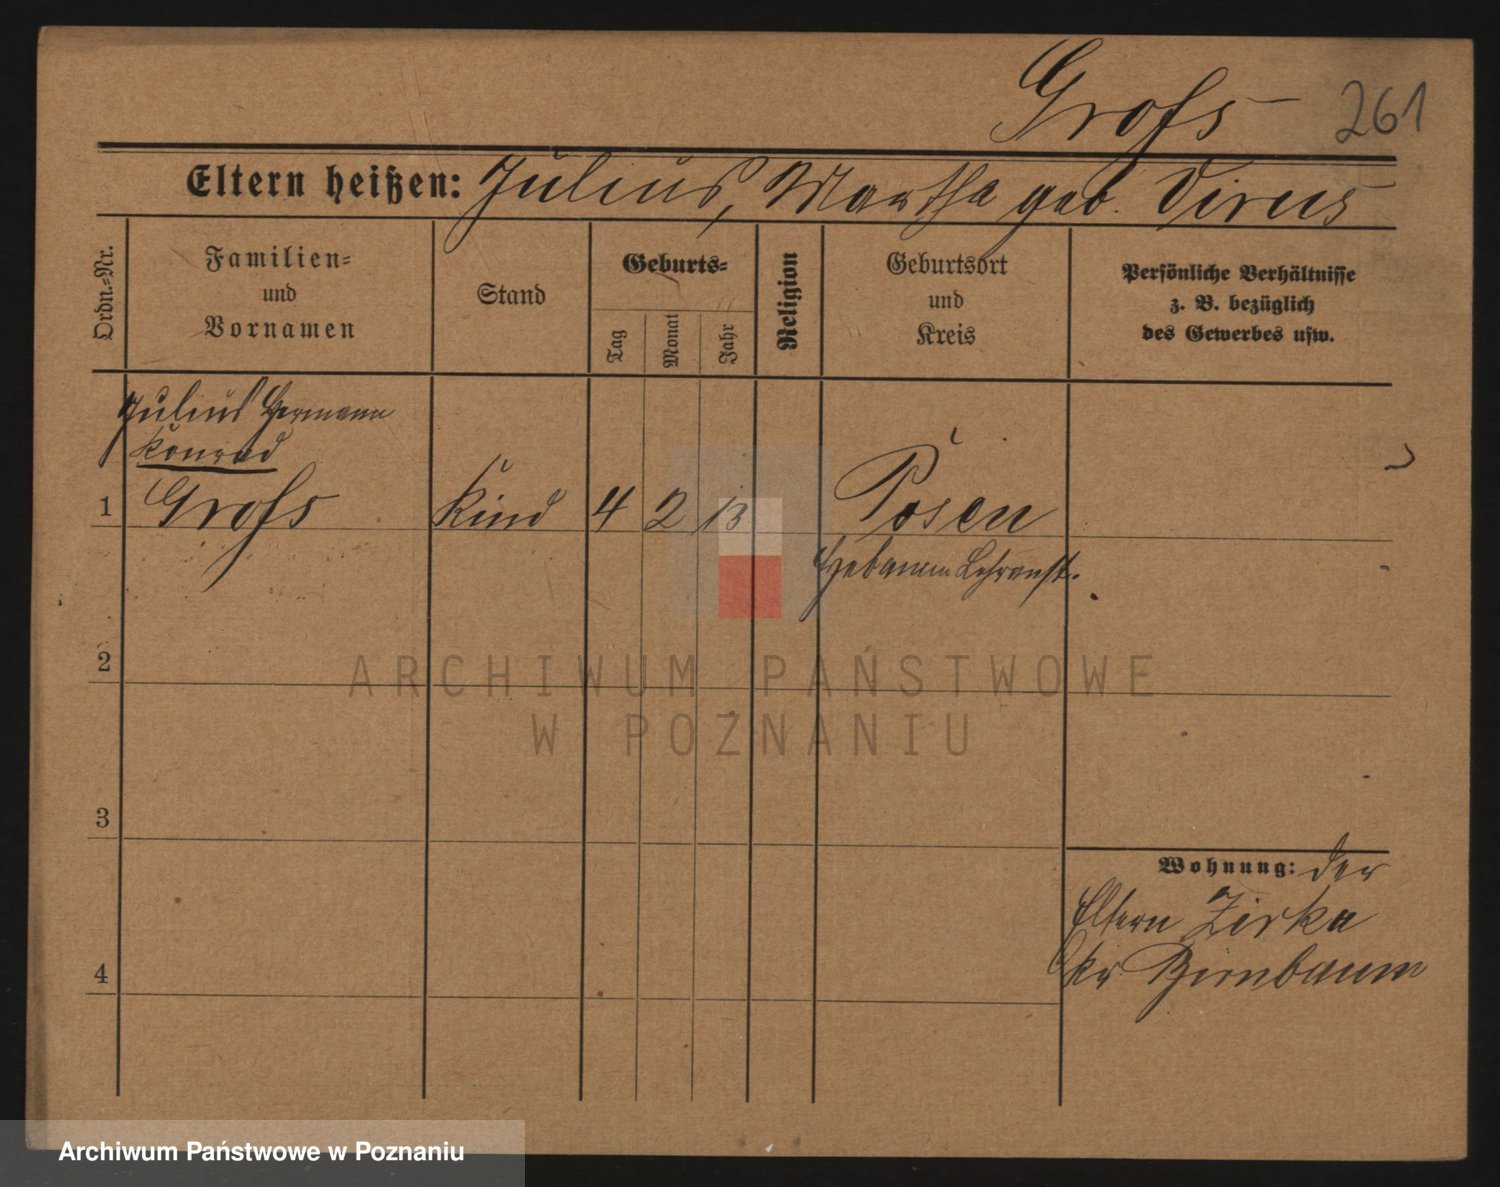 Groß 261
Eltern heißen: Julius, Martha geb. Virus
Ordn.-Nr.
Familien-
und
Vornamen
Stand
Geburts-
Tag
Monat
Jahr
Religion
Geburtsort
und
Kreis
Persönliche Verhältnisse
z. B. bezüglich
des Gewerbes usw.
Julius Hermann
Konrad
1 Groß Kind 4 2 13 Posen
Hebamm Lehranst.
2
3
4
Wohnung: der
Eltern Zirke
Kr. Birnbaum
ARCHIWUM PAŃSTWOWE
W POZNANIU
Archiwum Państwowe w Poznaniu